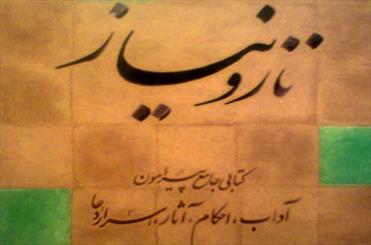 ناز و نیاز
کتابی جامع پیرامون
آداب، احکام، آثار، اسرار دعا